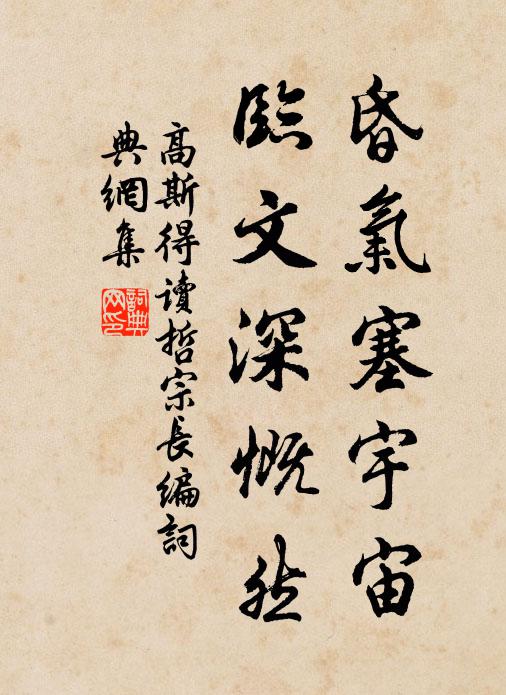 昏氣塞宇宙
臨文深慨然
高斯得讀哲宗長編詞
典網集
詞典
网印